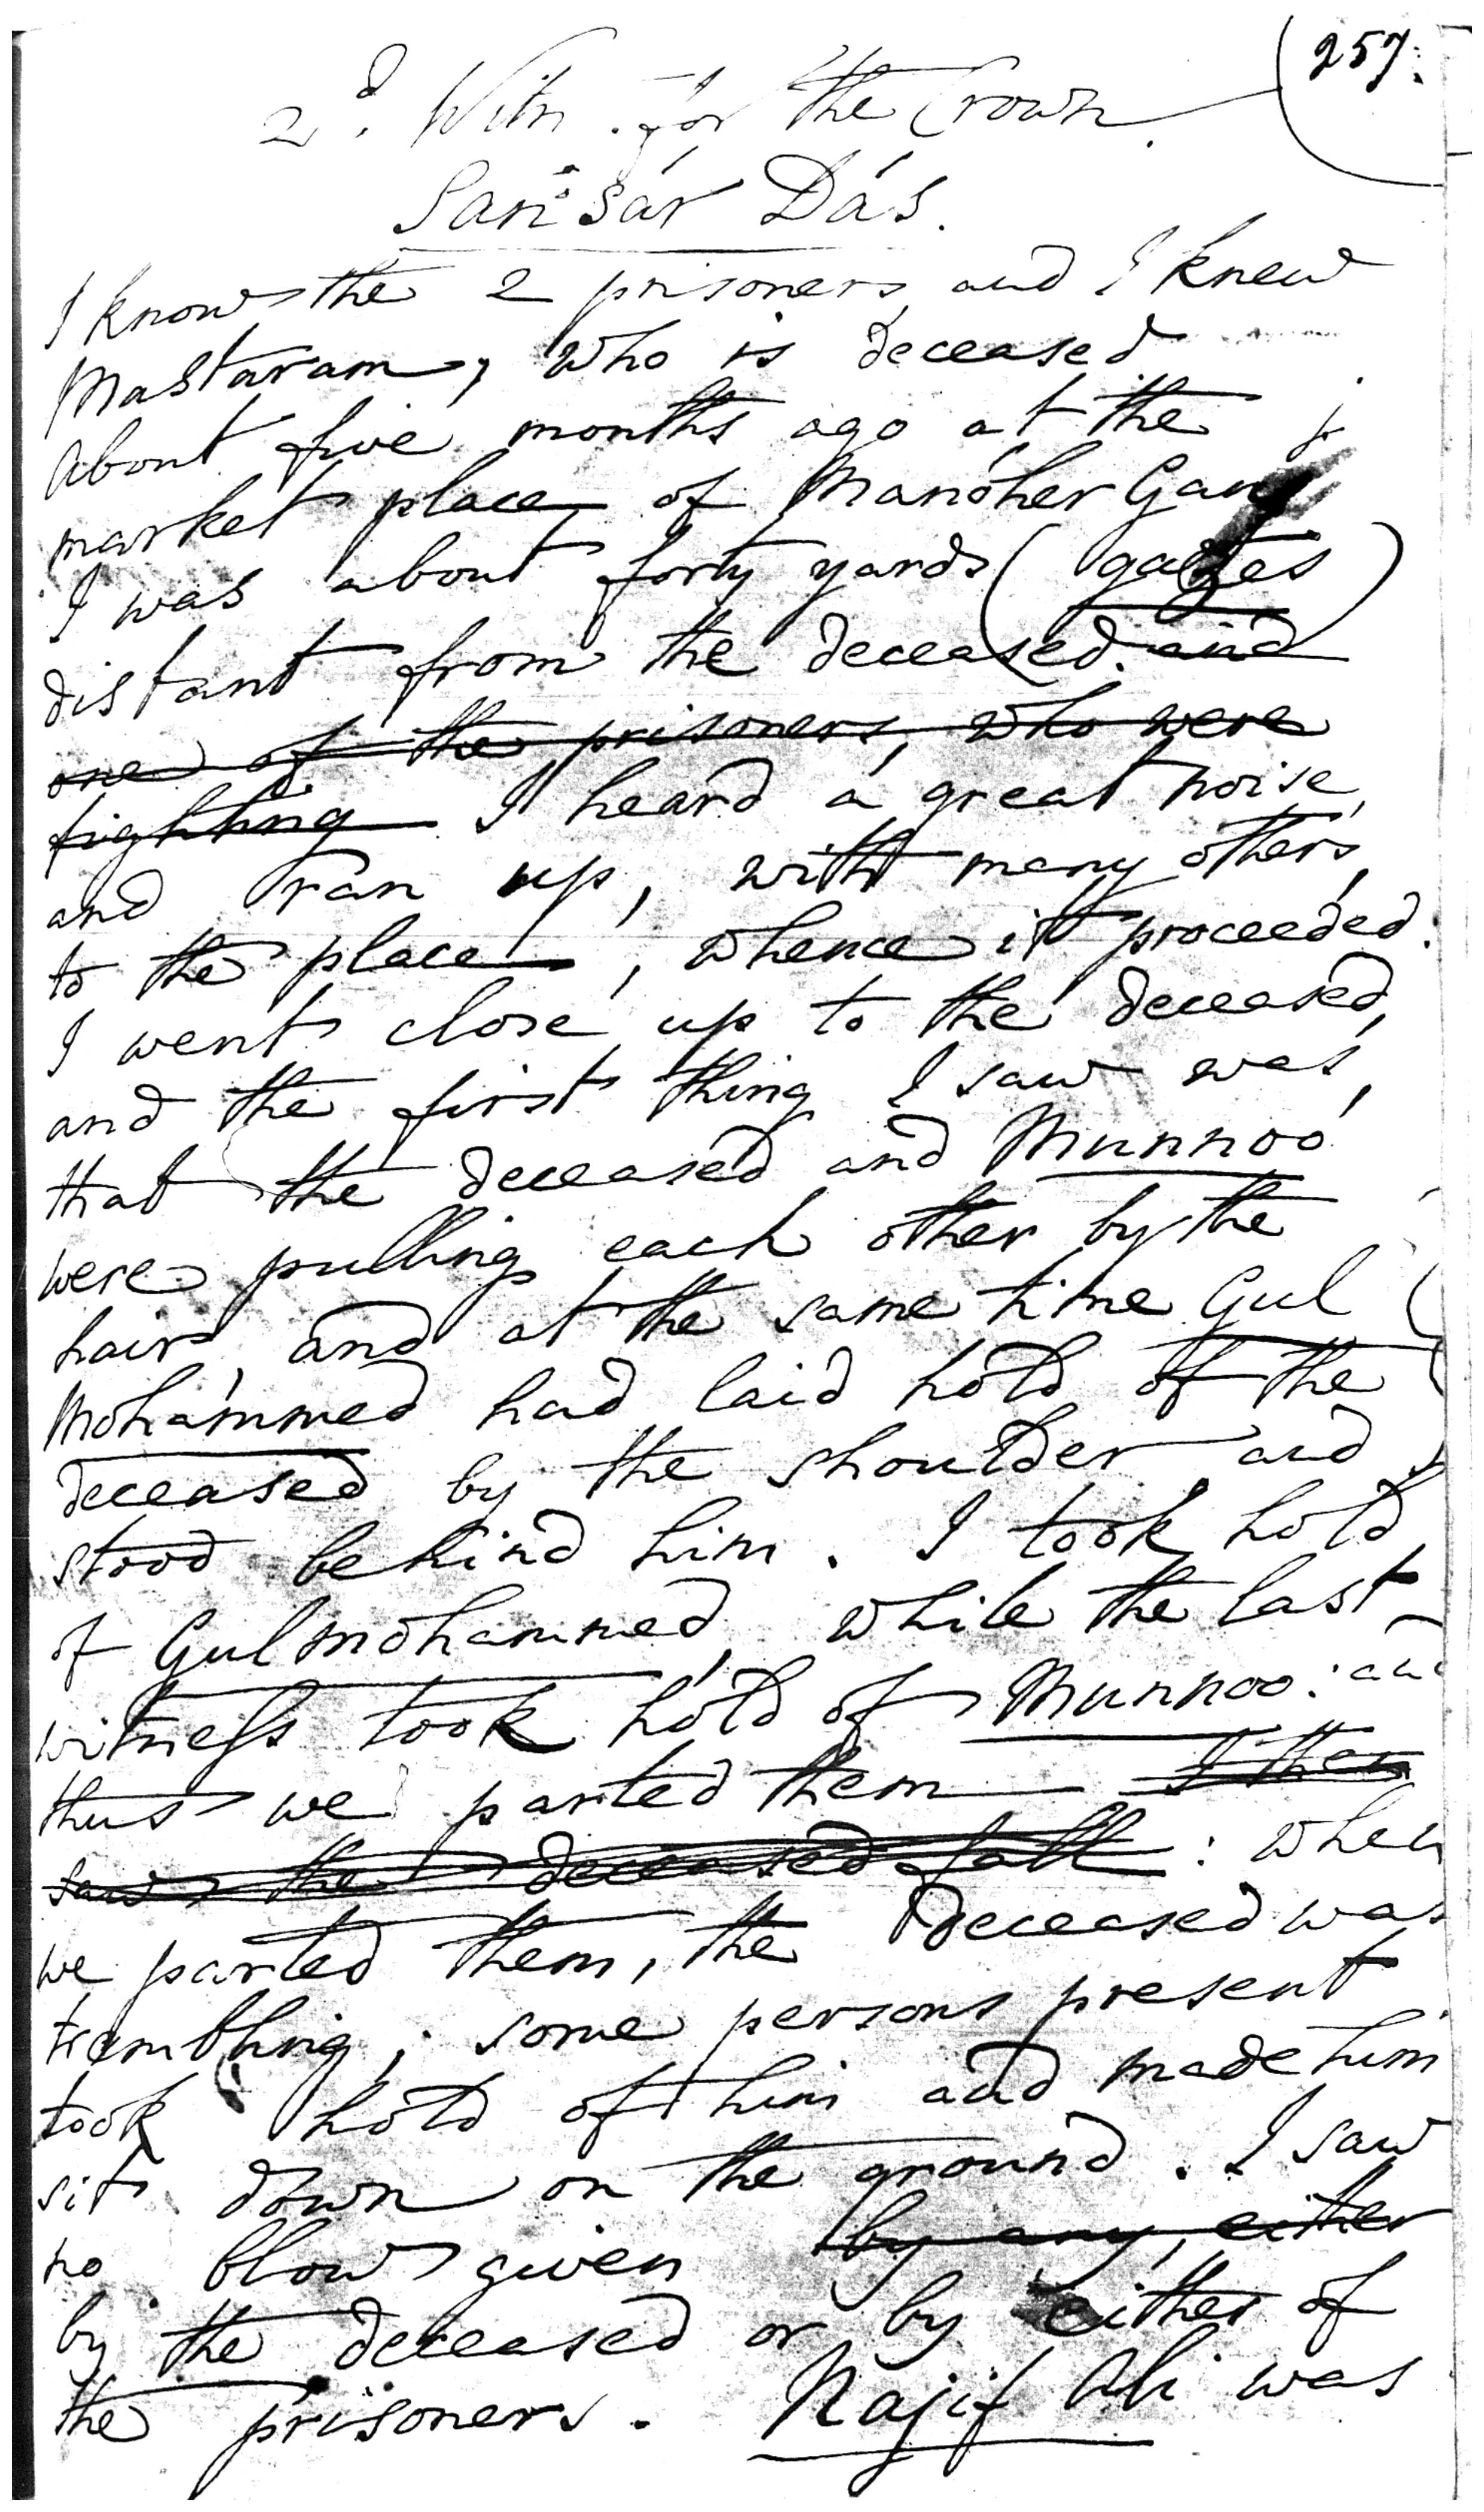 257.
2d. Witn. for the Crown.
Sansár Dás.
I know the 2 prisoners, and I knew
Mastaram, who is deceased
About five months ago at the
market place of Manóher Ganj
I was about forty yards (gazes)
distant from the deceased. and
one of the prisoners, who were
fighting I heard a great noise,
and ran up, with many others,
to the place, whence it proceeded.
I went close up to the deceased,
and the first thing I saw was,
that the deceased and Munnoo
were pulling each other by the
hair, and at the same time Gul
Mohámmed had laid hold of the
deceased by the shoulder, and
stood behind him. I took hold
of Gulmohammed, while the last
witness took hold of Munnoo: and
thus we parted them I then
saw the deceased fall: when
we parted them, the deceased was
trembling; some persons present
took hold of him and made him
sit down on the ground. I saw
no blow given by any, either
by the deceased or by either of
the prisoners. Najif Ali was